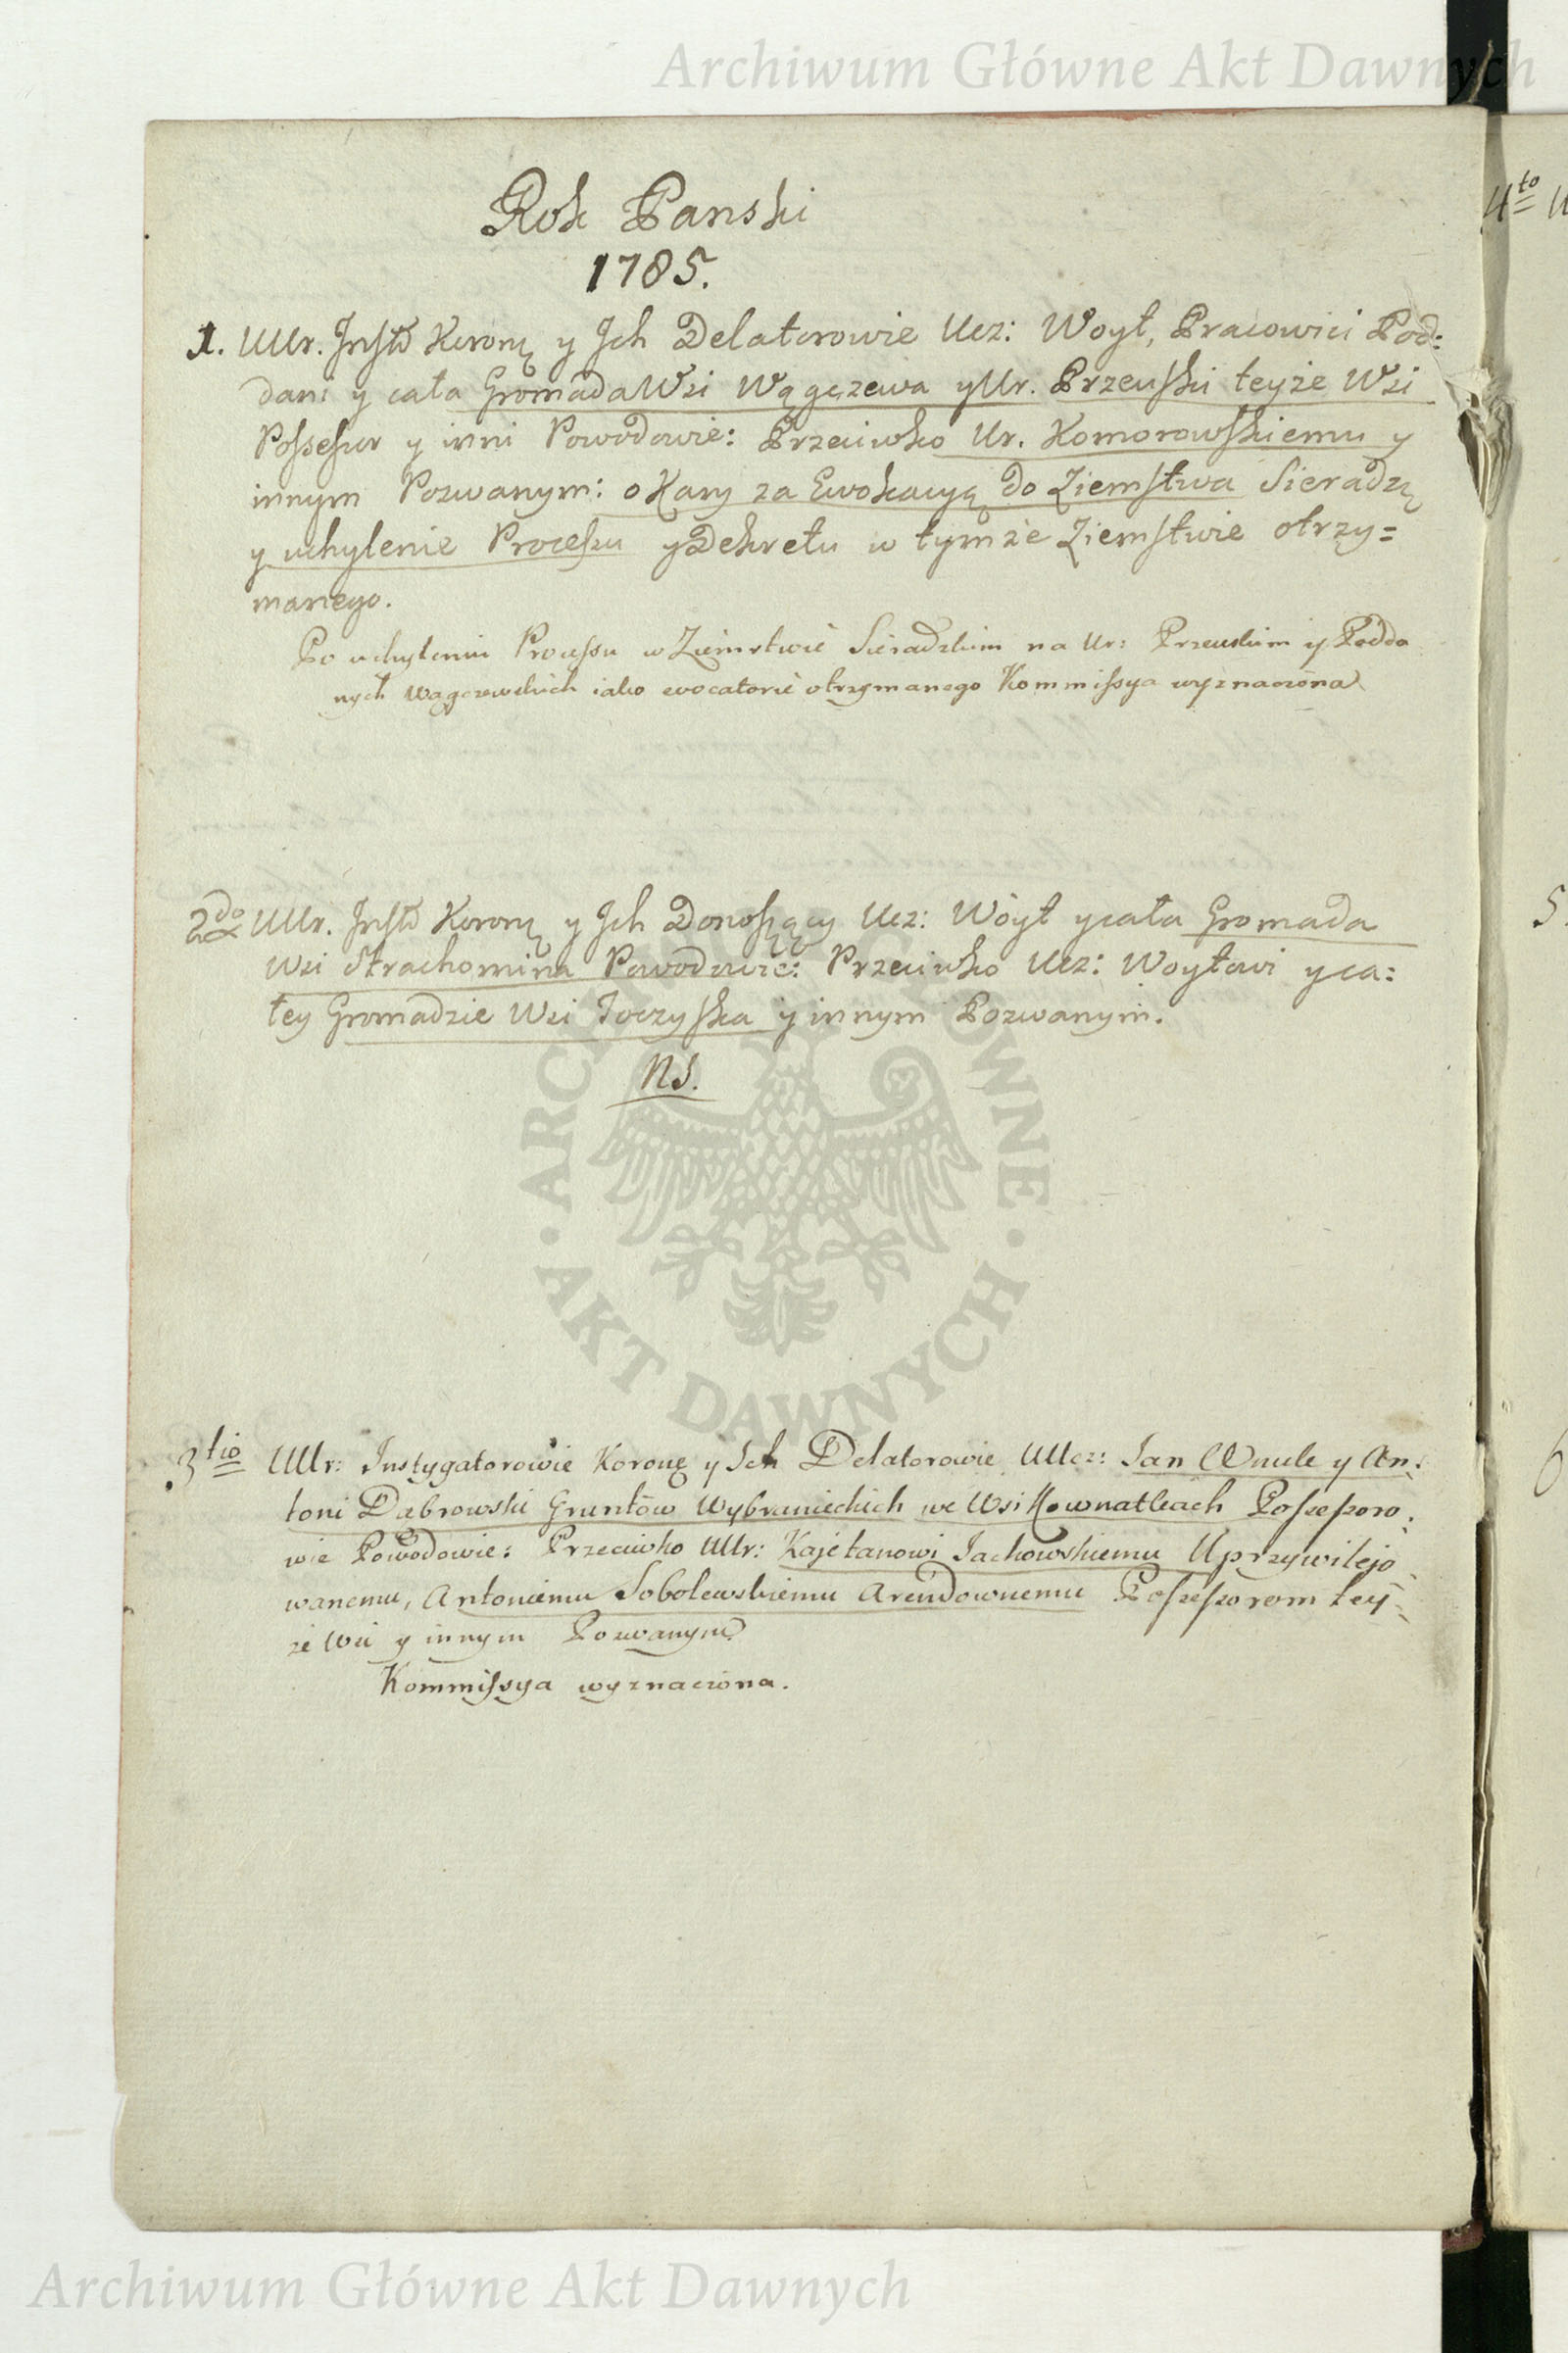 Archiwum Główne Akt Dawnych
Rok Panski
1785.
1. UUr. Instō Koronę y Jch Delatorowie Ucz: Woyt, Pracowici Pod:
dani y cała Gromada Wsi Wągczewa y Ur. Przeuski teyże Wsi
Possessor y inni Powodowie: Przeciwko Ur. Komorowskiemu y
innym Pozwanym: o Kary za Ewokacyą do Ziemstwa Sieradzę
y uchylenie Processu y Dekretu w tymże Ziemstwie otrzy=
manego.
Po uchyleniu Processu w Ziemstwie Sieradzkim na Ur: Przeuskim y Podda
nych Wągczewskich iako evocatorie otrzymanego Kommissya wyznaczona
2do UUr. Instō Koronę y Jch Donoszący Ucz: Wóyt y cała Gromada
Wsi Strachomina Powodowie: Przeciwko Ucz: Woytowi y ca:
łey Gromadzie Wsi Toczyska y innym Pozwanym.
NS.
3tio UUr: Instygatorowie Koronę y Jch Delatorowie UUcz: Jan Wnuk y An:
toni Dąbrowski Gruntów Wybranieckich we Wsi Kownatkach Possessoro:
wie Powodowie: Przeciwko UUr: Kajetanowi Jachowskiemu Uprzywilejo
wanemu, Antoniemu Sobolewskiemu Arendownemu Possessorom tey
że Wsi y innym Pozwanym
Kommissya wyznaczona.
4to
5
6
ARCHIWUM GŁÓWNE · AKT DAWNYCH ·
Archiwum Główne Akt Dawnych